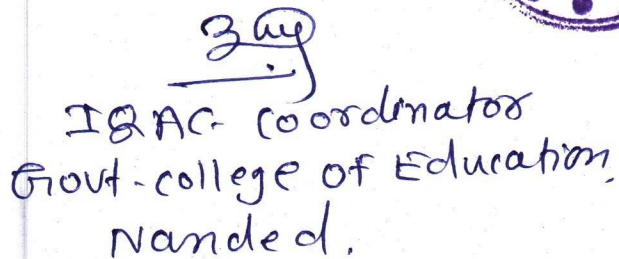 IQAC- Coordinator
Govt-college of Education,
Nanded.